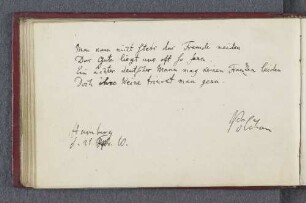 Man kann nicht stets das Fremde meiden
Das Gute liegt uns oft so fern
Ein echter deutscher Mann mag keinen Franzen leiden
Doch ihre Weine trinckt man gern.
Hamburg
d. 28. 60.